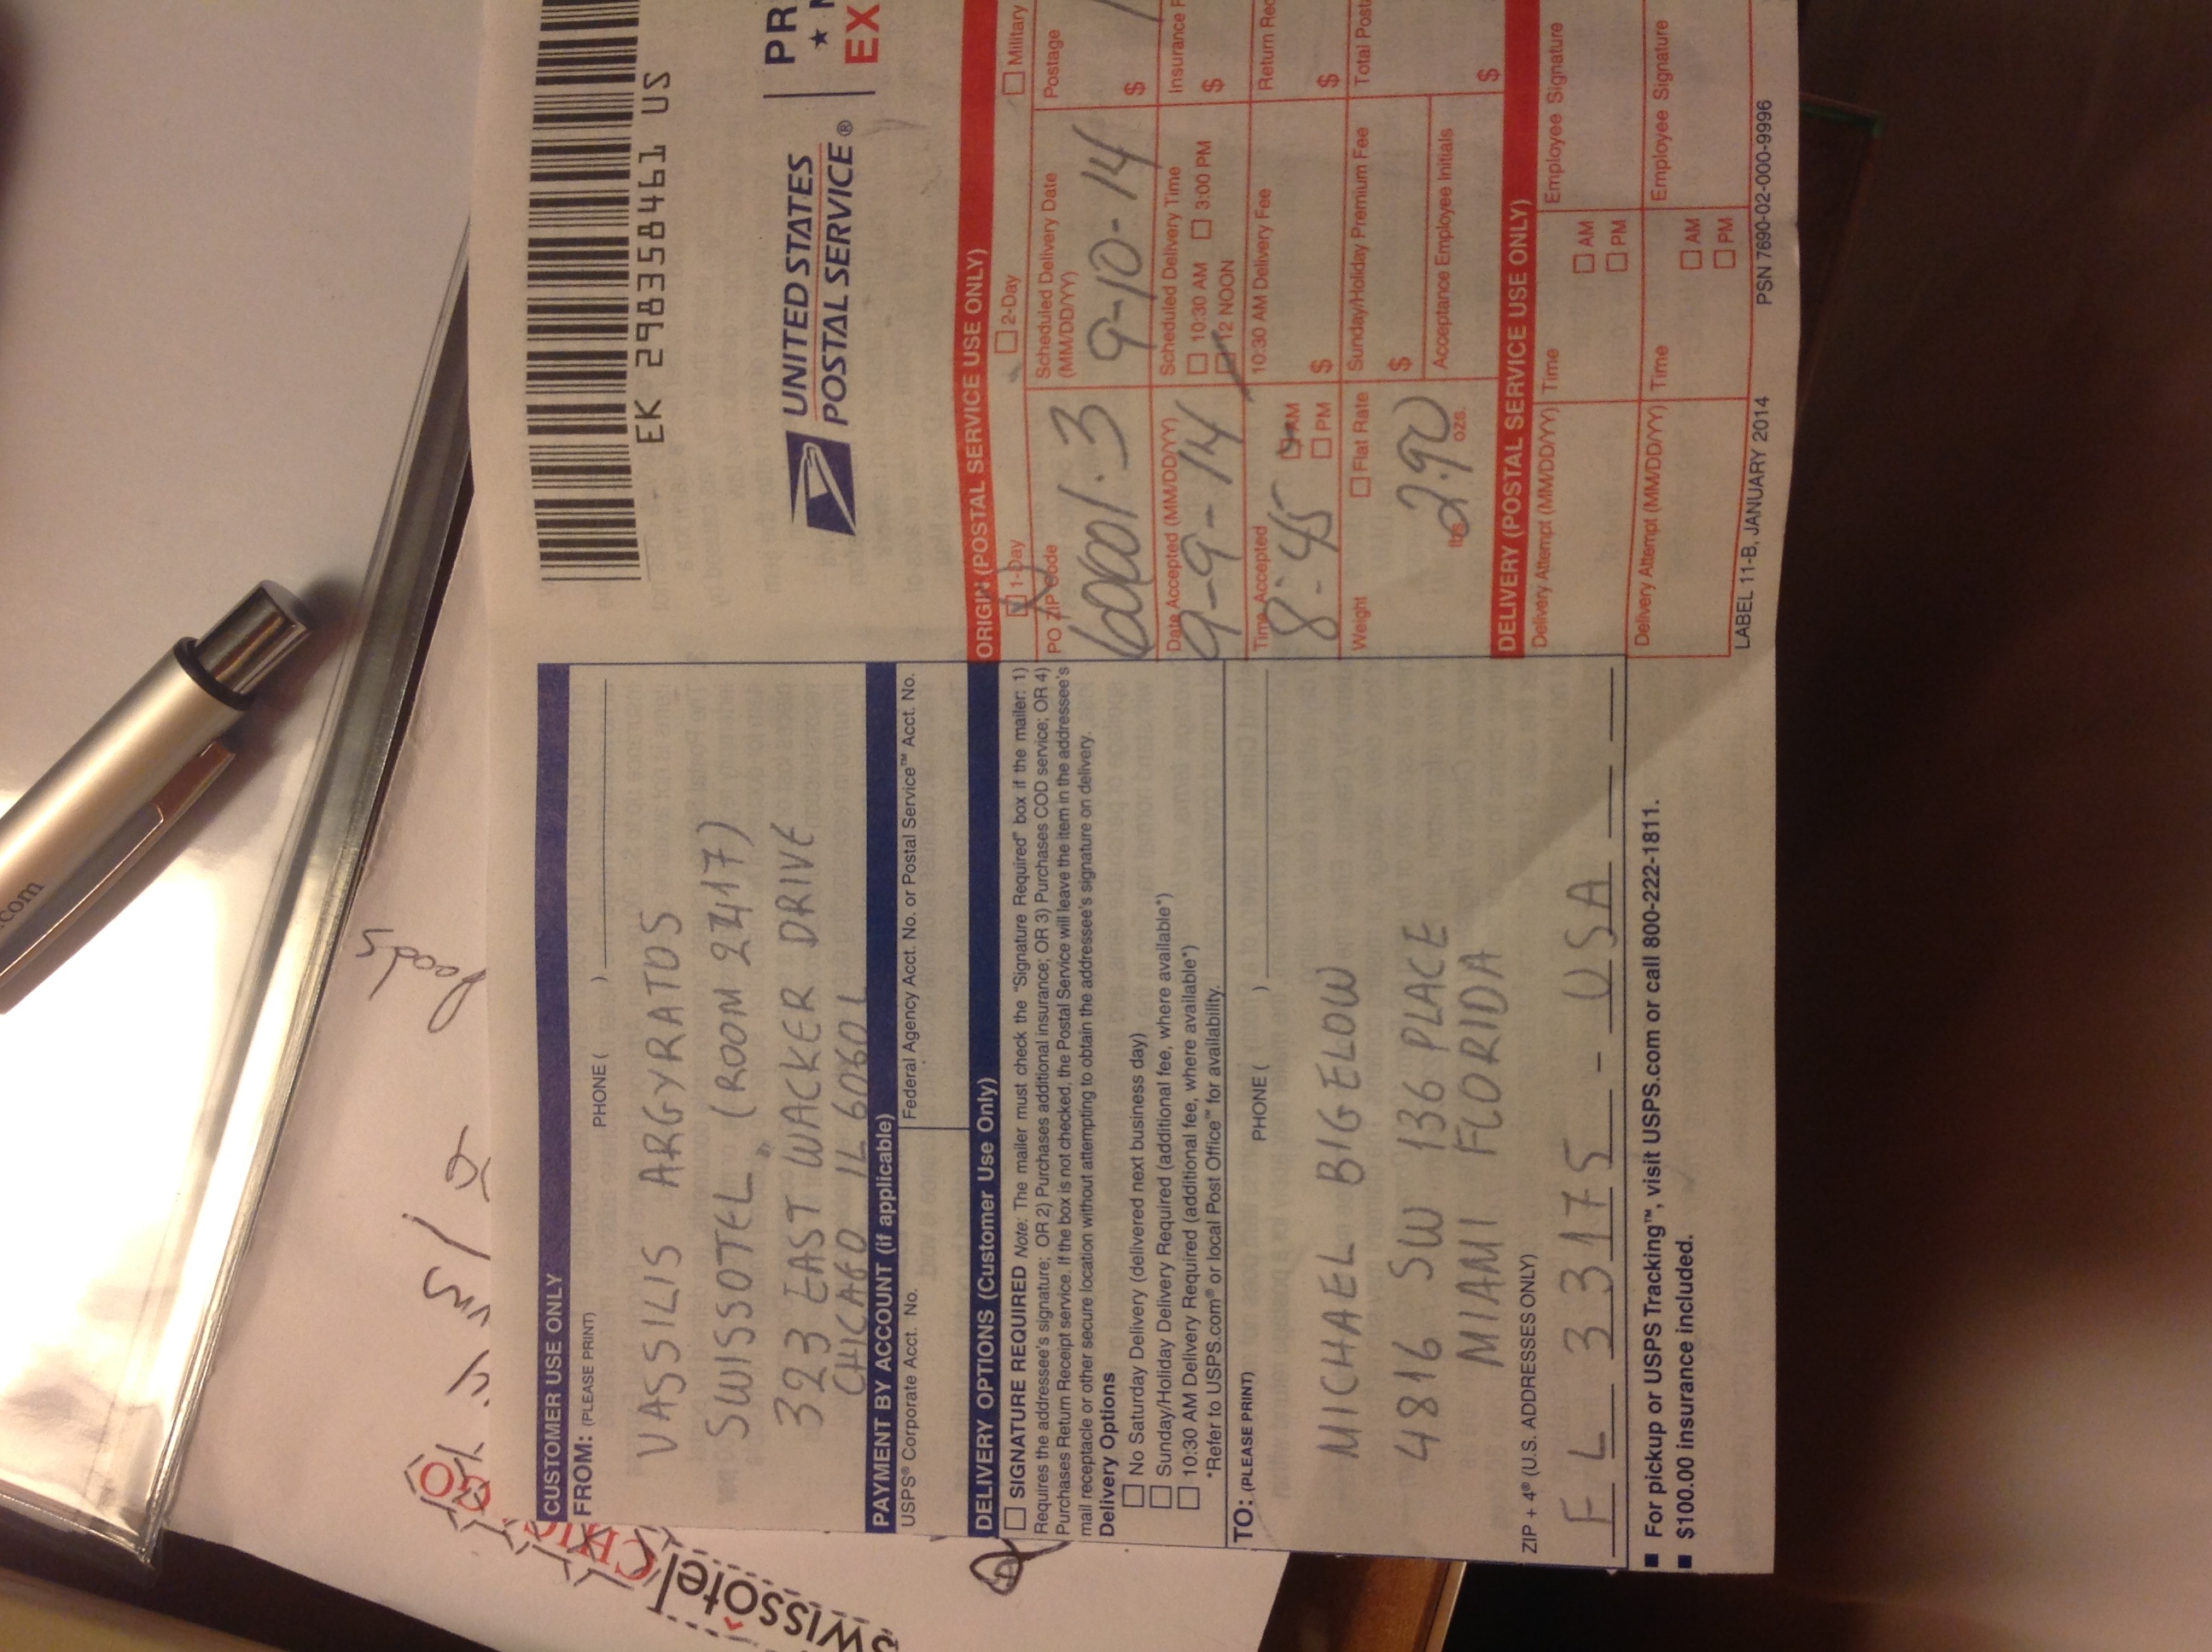 .com
Swissôtel
foods
CUSTOMER USE ONLY
FROM: (PLEASE PRINT)
PHONE ( )
VASSILIS ARGYRATOS
SWISSOTEL (ROOM 2417)
323 EAST WACKER DRIVE
CHICAGO IL 60601
PAYMENT BY ACCOUNT (if applicable)
USPS® Corporate Acct. No.
Federal Agency Acct. No. or Postal Service™ Acct. No.
DELIVERY OPTIONS (Customer Use Only)
SIGNATURE REQUIRED Note: The mailer must check the "Signature Required" box if the mailer: 1)
Requires the addressee's signature; OR 2) Purchases additional insurance; OR 3) Purchases COD service; OR 4)
Purchases Return Receipt service. If the box is not checked, the Postal Service will leave the item in the addressee's
mail receptacle or other secure location without attempting to obtain the addressee's signature on delivery.
Delivery Options
No Saturday Delivery (delivered next business day)
Sunday/Holiday Delivery Required (additional fee, where available*)
10:30 AM Delivery Required (additional fee, where available*)
*Refer to USPS.com® or local Post Office™ for availability.
TO: (PLEASE PRINT)
PHONE ( )
MICHAEL BIGELOW
4816 SW 136 PLACE
MIAMI FLORIDA
ZIP + 4® (U.S. ADDRESSES ONLY)
FL 33175 - USA
For pickup or USPS Tracking™, visit USPS.com or call 800-222-1811.
$100.00 insurance included.
EK 298358461 US
UNITED STATES
POSTAL SERVICE®
PR
EX
ORIGIN (POSTAL SERVICE USE ONLY)
1-Day
2-Day
Military
PO ZIP Code
60601.3
Scheduled Delivery Date
(MM/DD/YY)
9-10-14
Postage
$
Date Accepted (MM/DD/YY)
9-9-14
Scheduled Delivery Time
10:30 AM 3:00 PM
12 NOON
Insurance F
$
Time Accepted
8:45
AM
PM
10:30 AM Delivery Fee
$
Return Rec
$
Weight
Flat Rate
2.90
lbs. ozs.
Sunday/Holiday Premium Fee
$
Total Posta
Acceptance Employee Initials
$
DELIVERY (POSTAL SERVICE USE ONLY)
Delivery Attempt (MM/DD/YY) Time
AM
PM
Employee Signature
Delivery Attempt (MM/DD/YY) Time
AM
PM
Employee Signature
LABEL 11-B, JANUARY 2014
PSN 7690-02-000-9996